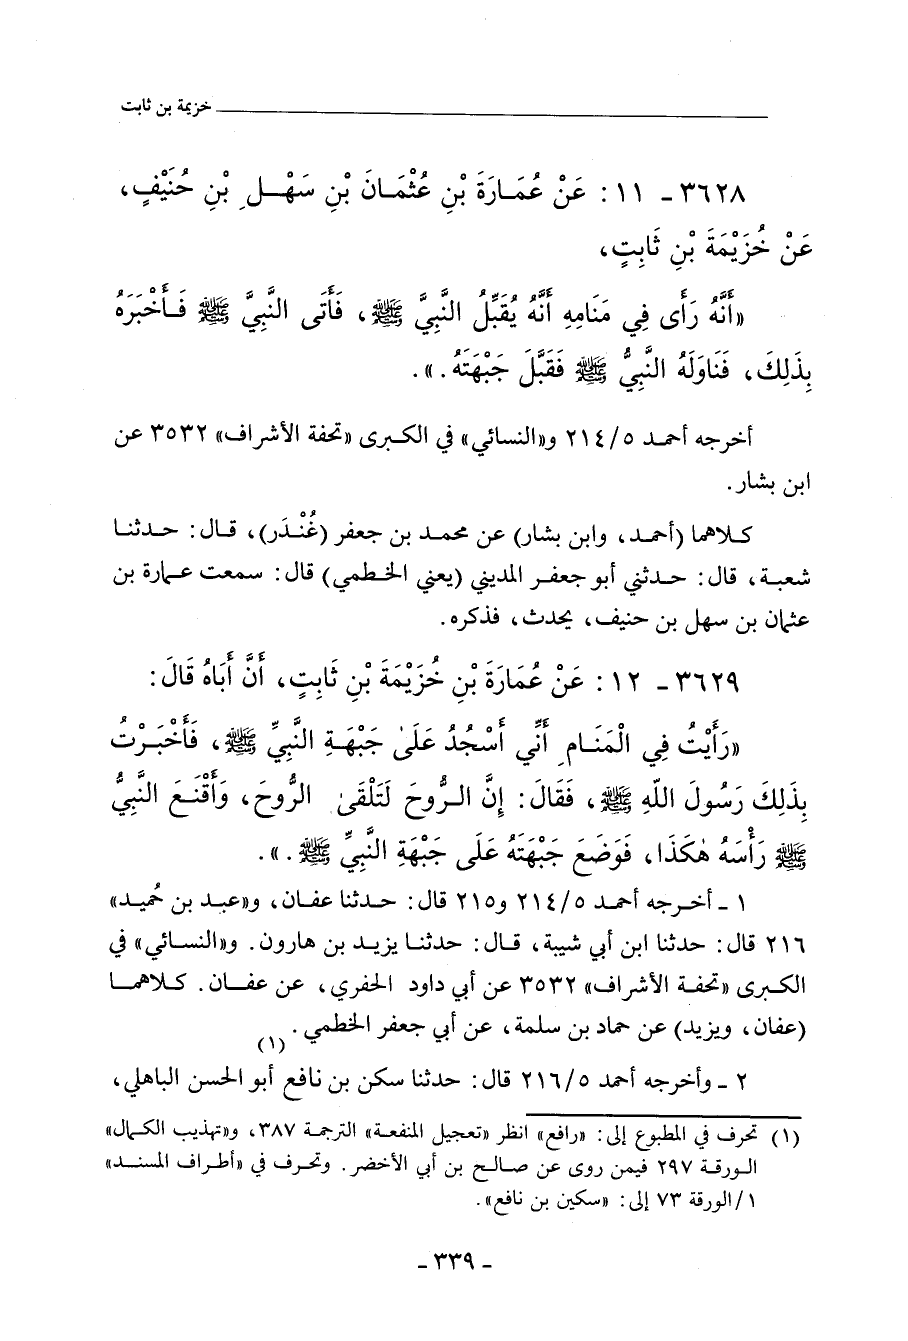 خزيمة بن ثابت
٣٦٢٨ - ١١ : عَنْ عُمَارَةَ بْنِ عُثْمَانَ بْنِ سَهْلِ بْنِ حُنَيْفٍ،
عَنْ خُزَيْمَةَ بْنِ ثَابِتٍ،
«أَنَّهُ رَأَى فِي مَنَامِهِ أَنَّهُ يُقَبِّلُ النَّبِيَّ ﷺ، فَأَتَى النَّبِيَّ ﷺ فَأَخْبَرَهُ
بِذَلِكَ، فَنَاوَلَهُ النَّبِيُّ ﷺ فَقَبَّلَ جَبْهَتَهُ.».
أخرجه أحمد ٢١٤/٥ و«النسائي» في الكبرى «تحفة الأشراف» ٣٥٣٢ عن
ابن بشار.
كلاهما (أحمد، وابن بشار) عن محمد بن جعفر (غُنْدَر)، قال: حدثنا
شعبة، قال: حدثني أبو جعفر المديني (يعني الخطمي) قال: سمعت عمارة بن
عثمان بن سهل بن حنيف، يحدث، فذكره.
٣٦٢٩ - ١٢ : عَنْ عُمَارَةَ بْنِ خُزَيْمَةَ بْنِ ثَابِتٍ، أَنَّ أَبَاهُ قَالَ:
«رَأَيْتُ فِي الْمَنَامِ أَنِّي أَسْجُدُ عَلَىٰ جَبْهَةِ النَّبِيِّ ﷺ، فَأَخْبَرْتُ
بِذَلِكَ رَسُولَ اللّهِ ﷺ، فَقَالَ: إِنَّ الرُّوحَ لَتَلْقَىٰ الرُّوحَ، وَأَقْنَعَ النَّبِيُّ
ﷺ رَأْسَهُ هٰكَذَا، فَوَضَعَ جَبْهَتَهُ عَلَى جَبْهَةِ النَّبِيِّ ﷺ.».
١ - أخرجه أحمد ٢١٤/٥ و٢١٥ قال: حدثنا عفان، و«عبد بن حُميد»
٢١٦ قال: حدثنا ابن أبي شيبة، قال: حدثنا يزيد بن هارون. و«النسائي» في
الكبرى «تحفة الأشراف» ٣٥٣٢ عن أبي داود الحفري، عن عفان. كلاهما
(عفان، ويزيد) عن حماد بن سلمة، عن أبي جعفر الخطمي.
٢ - وأخرجه أحمد ٢١٦/٥ قال: حدثنا سكن بن نافع (١) أبو الحسن الباهلي،
(١) تحرف في المطبوع إلى: «رافع» انظر «تعجيل المنفعة» الترجمة ٣٨٧، و«تهذيب الكمال»
الورقة ٢٩٧ فيمن روى عن صالح بن أبي الأخضر. وتحرف في «أطراف المسند»
١/الورقة ٧٣ إلى: «سكين بن نافع».
- ٣٣٩ -